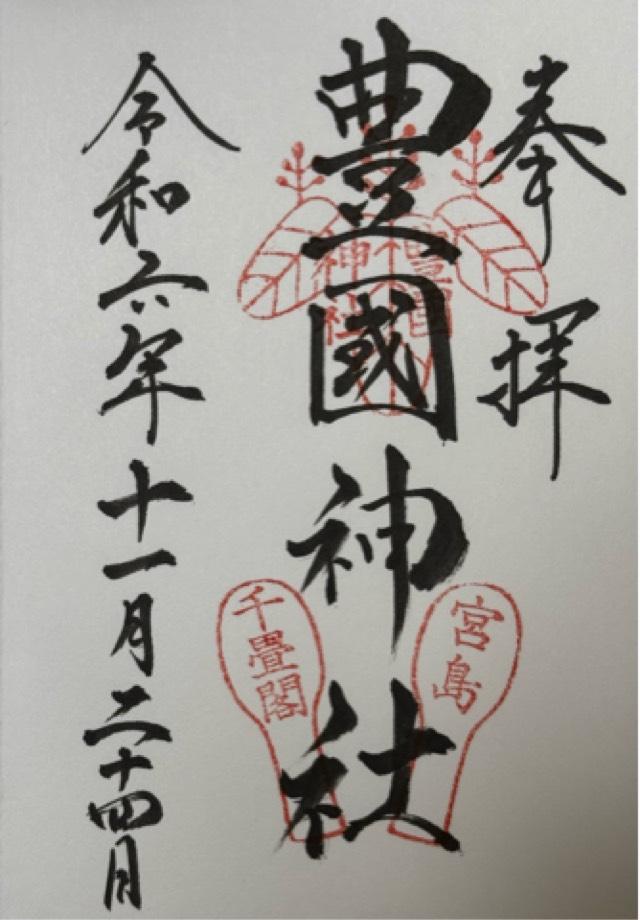 奉拝
豊國神社
豊國
神社
宮島
千畳閣
令和六年十一月二十四日